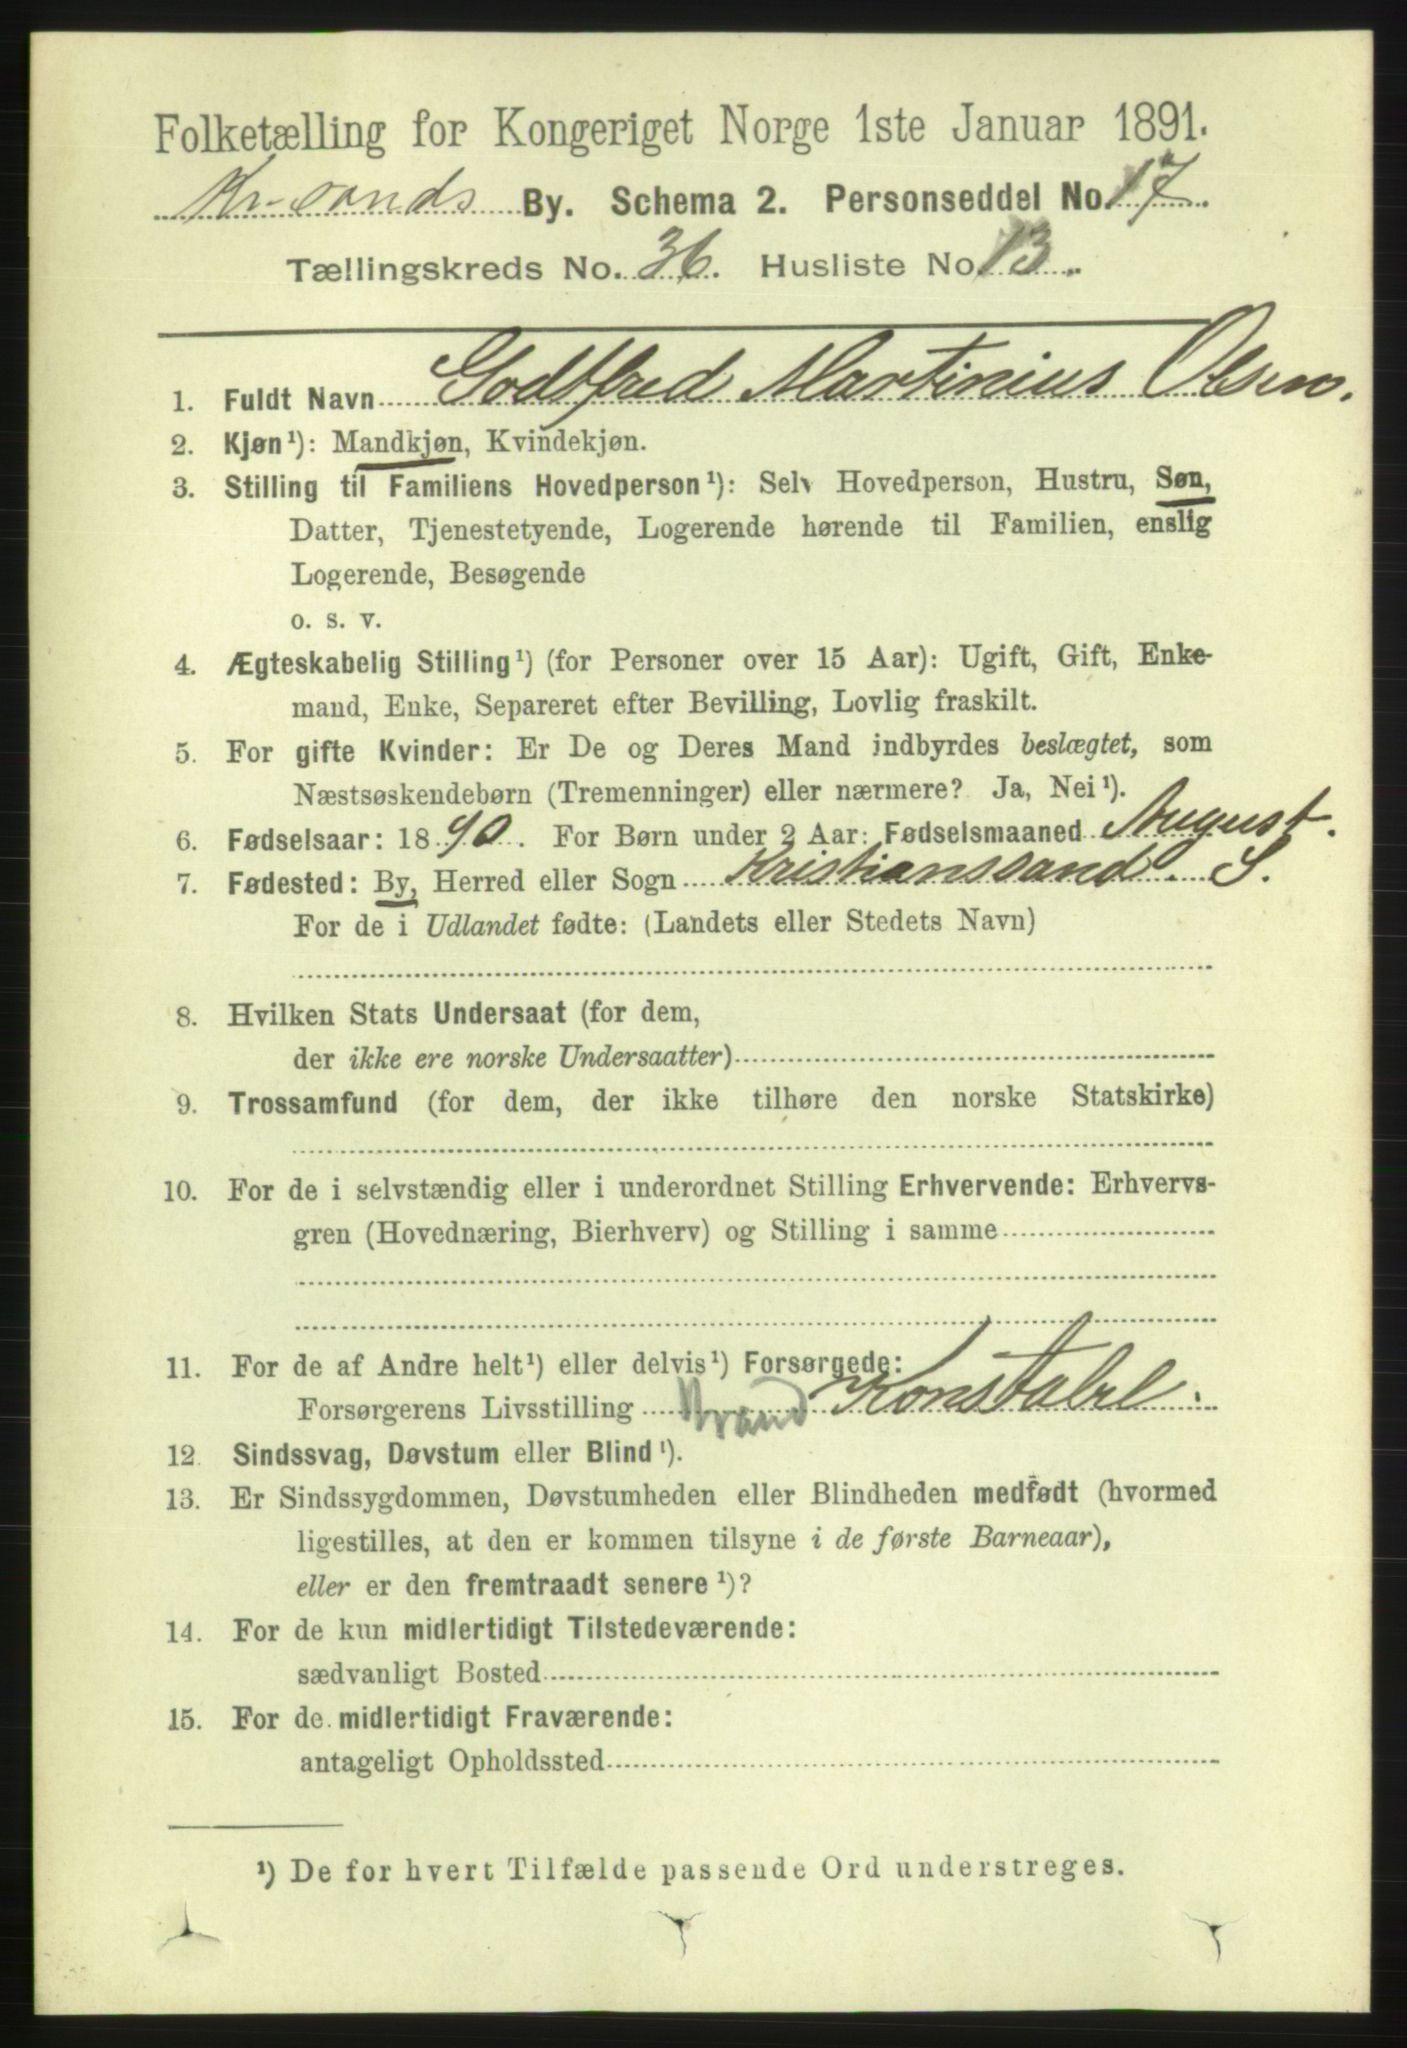 Folketælling for Kongeriget Norge 1ste Januar 1891.
Kr-sands By. Schema 2. Personseddel No. 17.
Tællingskreds No. 36. Husliste No. 13.
1. Fuldt Navn Godtfred Martinius Olsen.
2. Kjøn¹): Mandkjøn, Kvindekjøn.
3. Stilling til Familiens Hovedperson¹): Selv Hovedperson, Hustru, Søn,
Datter, Tjenestetyende, Logerende hørende til Familien, enslig
Logerende, Besøgende
o. s. v.
4. Ægteskabelig Stilling¹) (for Personer over 15 Aar): Ugift, Gift, Enke-
mand, Enke, Separeret efter Bevilling, Lovlig fraskilt.
5. For gifte Kvinder: Er De og Deres Mand indbyrdes beslægtet, som
Næstsøskendebørn (Tremenninger) eller nærmere? Ja, Nei¹).
6. Fødselsaar: 1890. For Børn under 2 Aar: Fødselsmaaned August.
7. Fødested: By, Herred eller Sogn Kristianssand. S.
For de i Udlandet fødte: (Landets eller Stedets Navn)
8. Hvilken Stats Undersaat (for dem,
der ikke ere norske Undersaatter)
9. Trossamfund (for dem, der ikke tilhøre den norske Statskirke)
10. For de i selvstændig eller i underordnet Stilling Erhvervende: Erhvervs-
gren (Hovednæring, Bierhverv) og Stilling i samme
11. For de af Andre helt¹) eller delvis¹) Forsørgede:
Forsørgerens Livsstilling Brand Konstabel.
12. Sindssvag, Døvstum eller Blind¹).
13. Er Sindssygdommen, Døvstumheden eller Blindheden medfødt (hvormed
ligestilles, at den er kommen tilsyne i de første Barneaar),
eller er den fremtraadt senere¹)?
14. For de kun midlertidigt Tilstedeværende:
sædvanligt Bosted
15. For de midlertidigt Fraværende:
antageligt Opholdssted
¹) De for hvert Tilfælde passende Ord understreges.